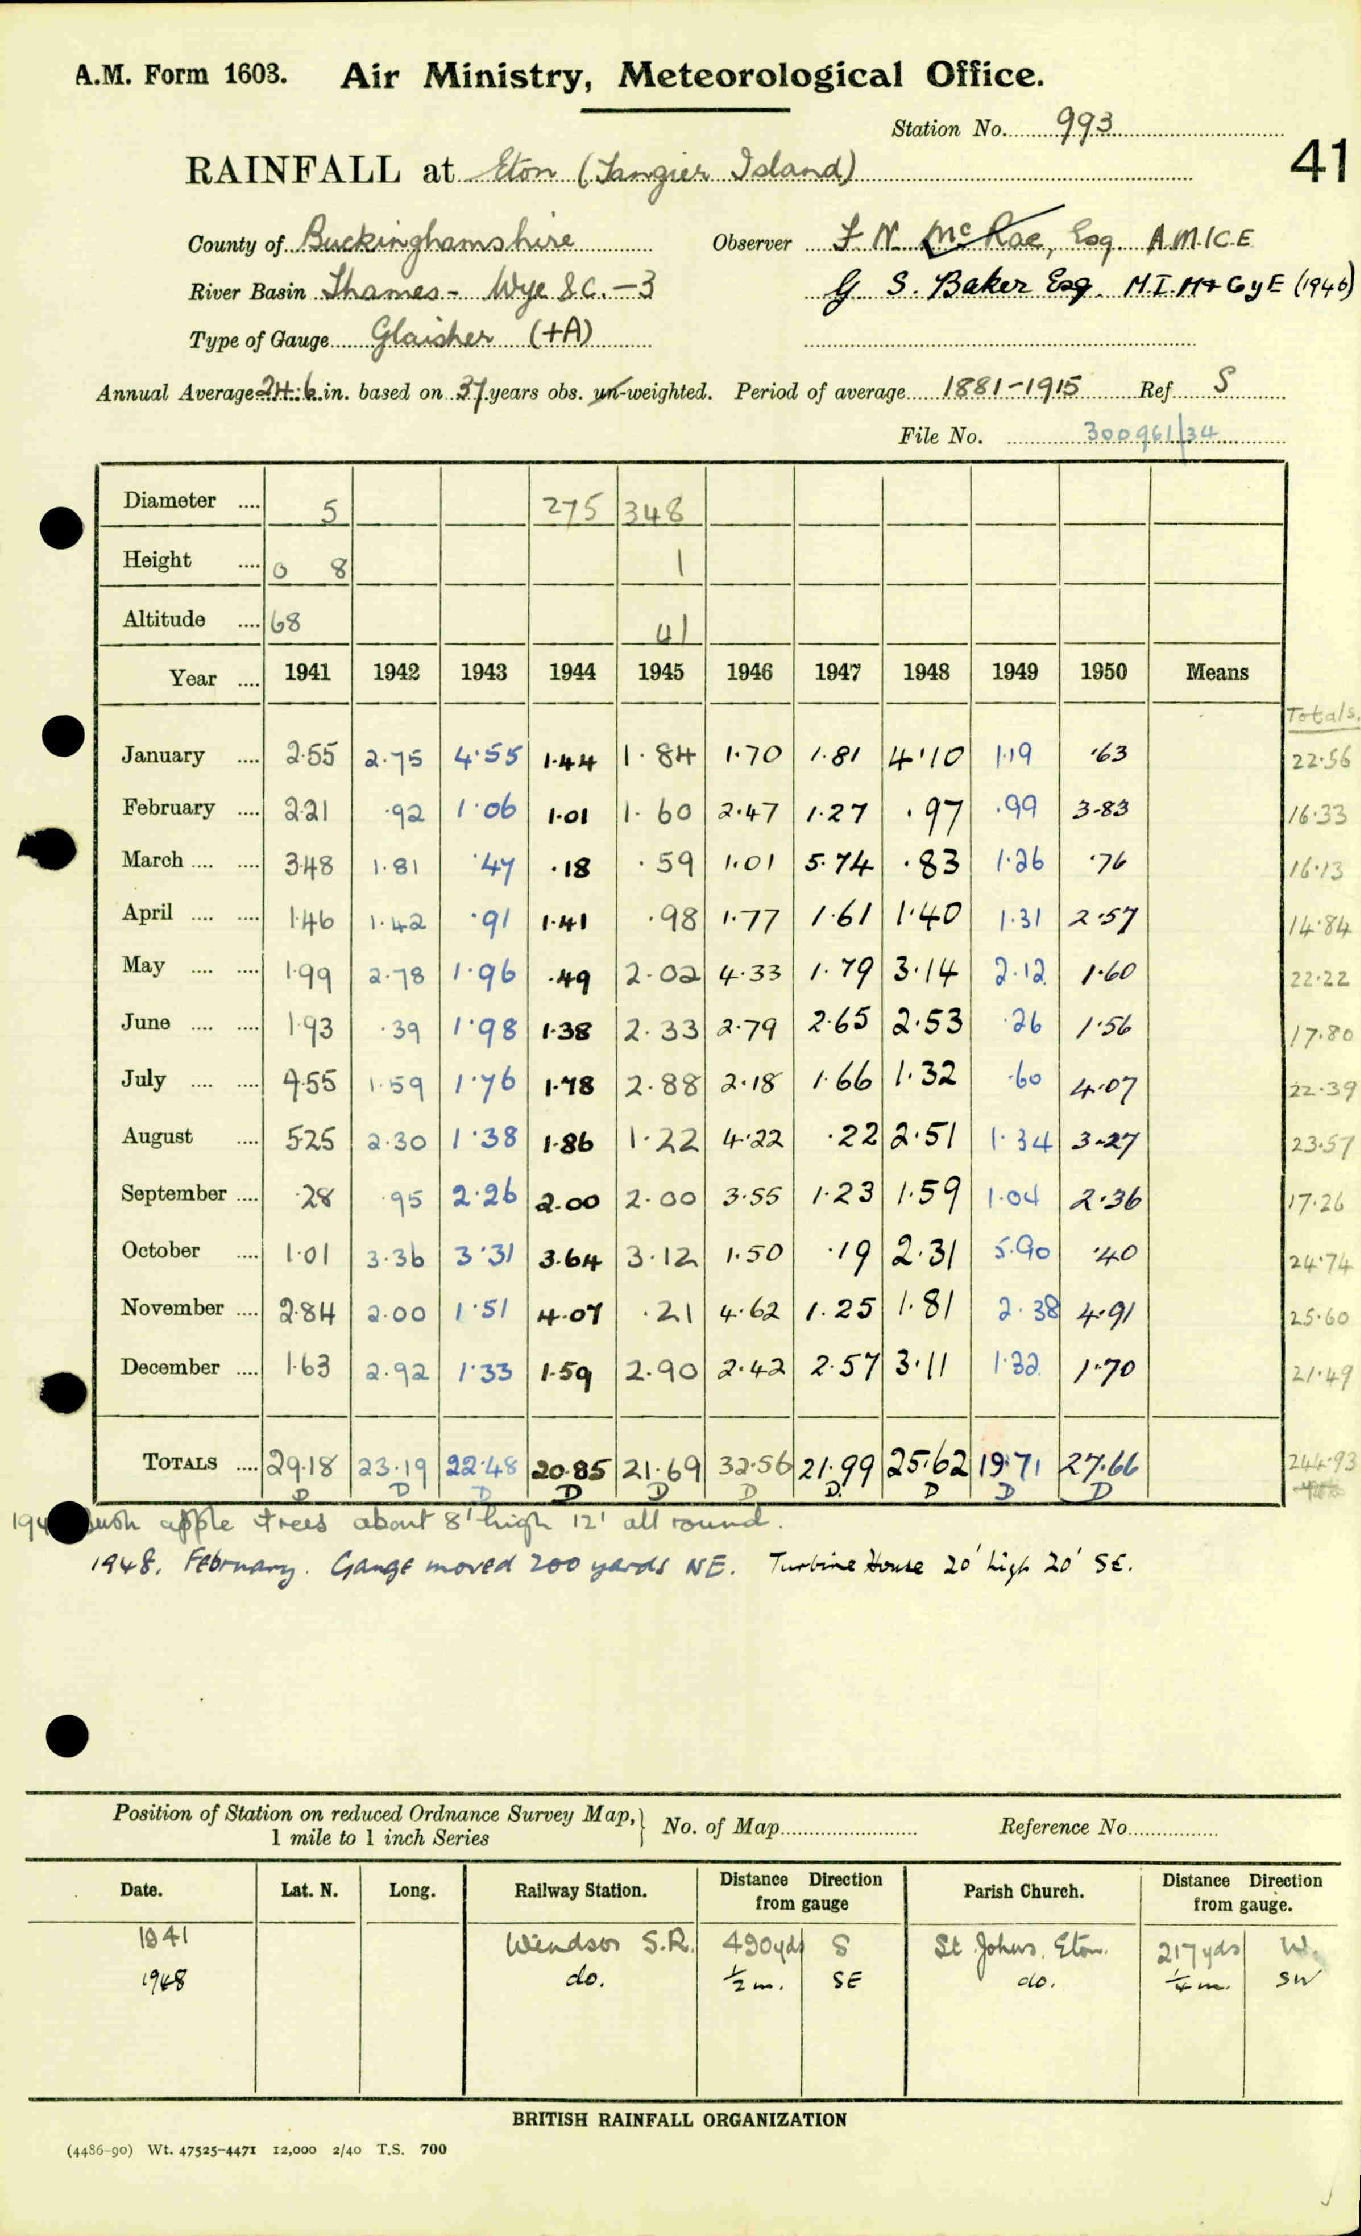 A.M. Form 1603. Air Ministry, Meteorological Office.
Station No. 993
41
RAINFALL at Eton (Tangier Island)
County of Buckinghamshire Observer F N McRae, Esq. A.M.I.C.E
River Basin Thames - Wye &c. -3 G S. Baker Esq. M.I.M+CyE (1946)
Type of Gauge Glaisher (+A)
Annual Average 24.6 in. based on 37 years obs. un-weighted. Period of average 1881-1915 Ref S
File No. 300961/34
Diameter .... 5 275 348
Height .... 0 8 1
Altitude .... 68 41
Year .... 1941 1942 1943 1944 1945 1946 1947 1948 1949 1950 Means
Totals.
January .... 2.55 2.75 4.55 1.44 1.84 1.70 1.81 4.10 1.19 .63 22.56
February .... 2.21 .92 1.06 1.01 1.60 2.47 1.27 .97 .99 3.83 16.33
March .... .... 3.48 1.81 .47 .18 .59 1.01 5.74 .83 1.26 .76 16.13
April .... .... 1.46 1.42 .91 1.41 .98 1.77 1.61 1.40 1.31 2.57 14.84
May .... .... 1.99 2.78 1.96 .49 2.02 4.33 1.79 3.14 2.12 1.60 22.22
June .... .... 1.93 .39 1.98 1.38 2.33 2.79 2.65 2.53 .26 1.56 17.80
July .... .... 4.55 1.59 1.76 1.78 2.88 2.18 1.66 1.32 .60 4.07 22.39
August .... 5.25 2.30 1.38 1.86 1.22 4.22 .22 2.51 1.34 3.27 23.57
September .... .28 .95 2.26 2.00 2.00 3.55 1.23 1.59 1.04 2.36 17.26
October .... 1.01 3.36 3.31 3.64 3.12 1.50 .19 2.31 5.90 .40 24.74
November .... 2.84 2.00 1.51 4.07 .21 4.62 1.25 1.81 2.38 4.91 25.60
December .... 1.63 2.92 1.33 1.59 2.90 2.42 2.57 3.11 1.32 1.70 21.49
TOTALS .... 29.18 23.19 22.48 20.85 21.69 32.56 21.99 25.62 19.71 27.66 244.93
D D D D D D D. D D D
194 Bush apple trees about 8' high 12' all round.
1948. February. Gauge moved 200 yards NE. Turbine House 20' high 20' SE.
Position of Station on reduced Ordnance Survey Map, 1 mile to 1 inch Series } No. of Map Reference No.
Date. Lat. N. Long. Railway Station. Distance Direction from gauge Parish Church. Distance Direction from gauge.
1941 Windsor S.R. 490yds S St Johns, Eton. 217yds W.
1948 do. ½ m. SE do. ¼ m. SW
BRITISH RAINFALL ORGANIZATION
(4486-90) Wt. 47525-4471 12,000 2/40 T.S. 700